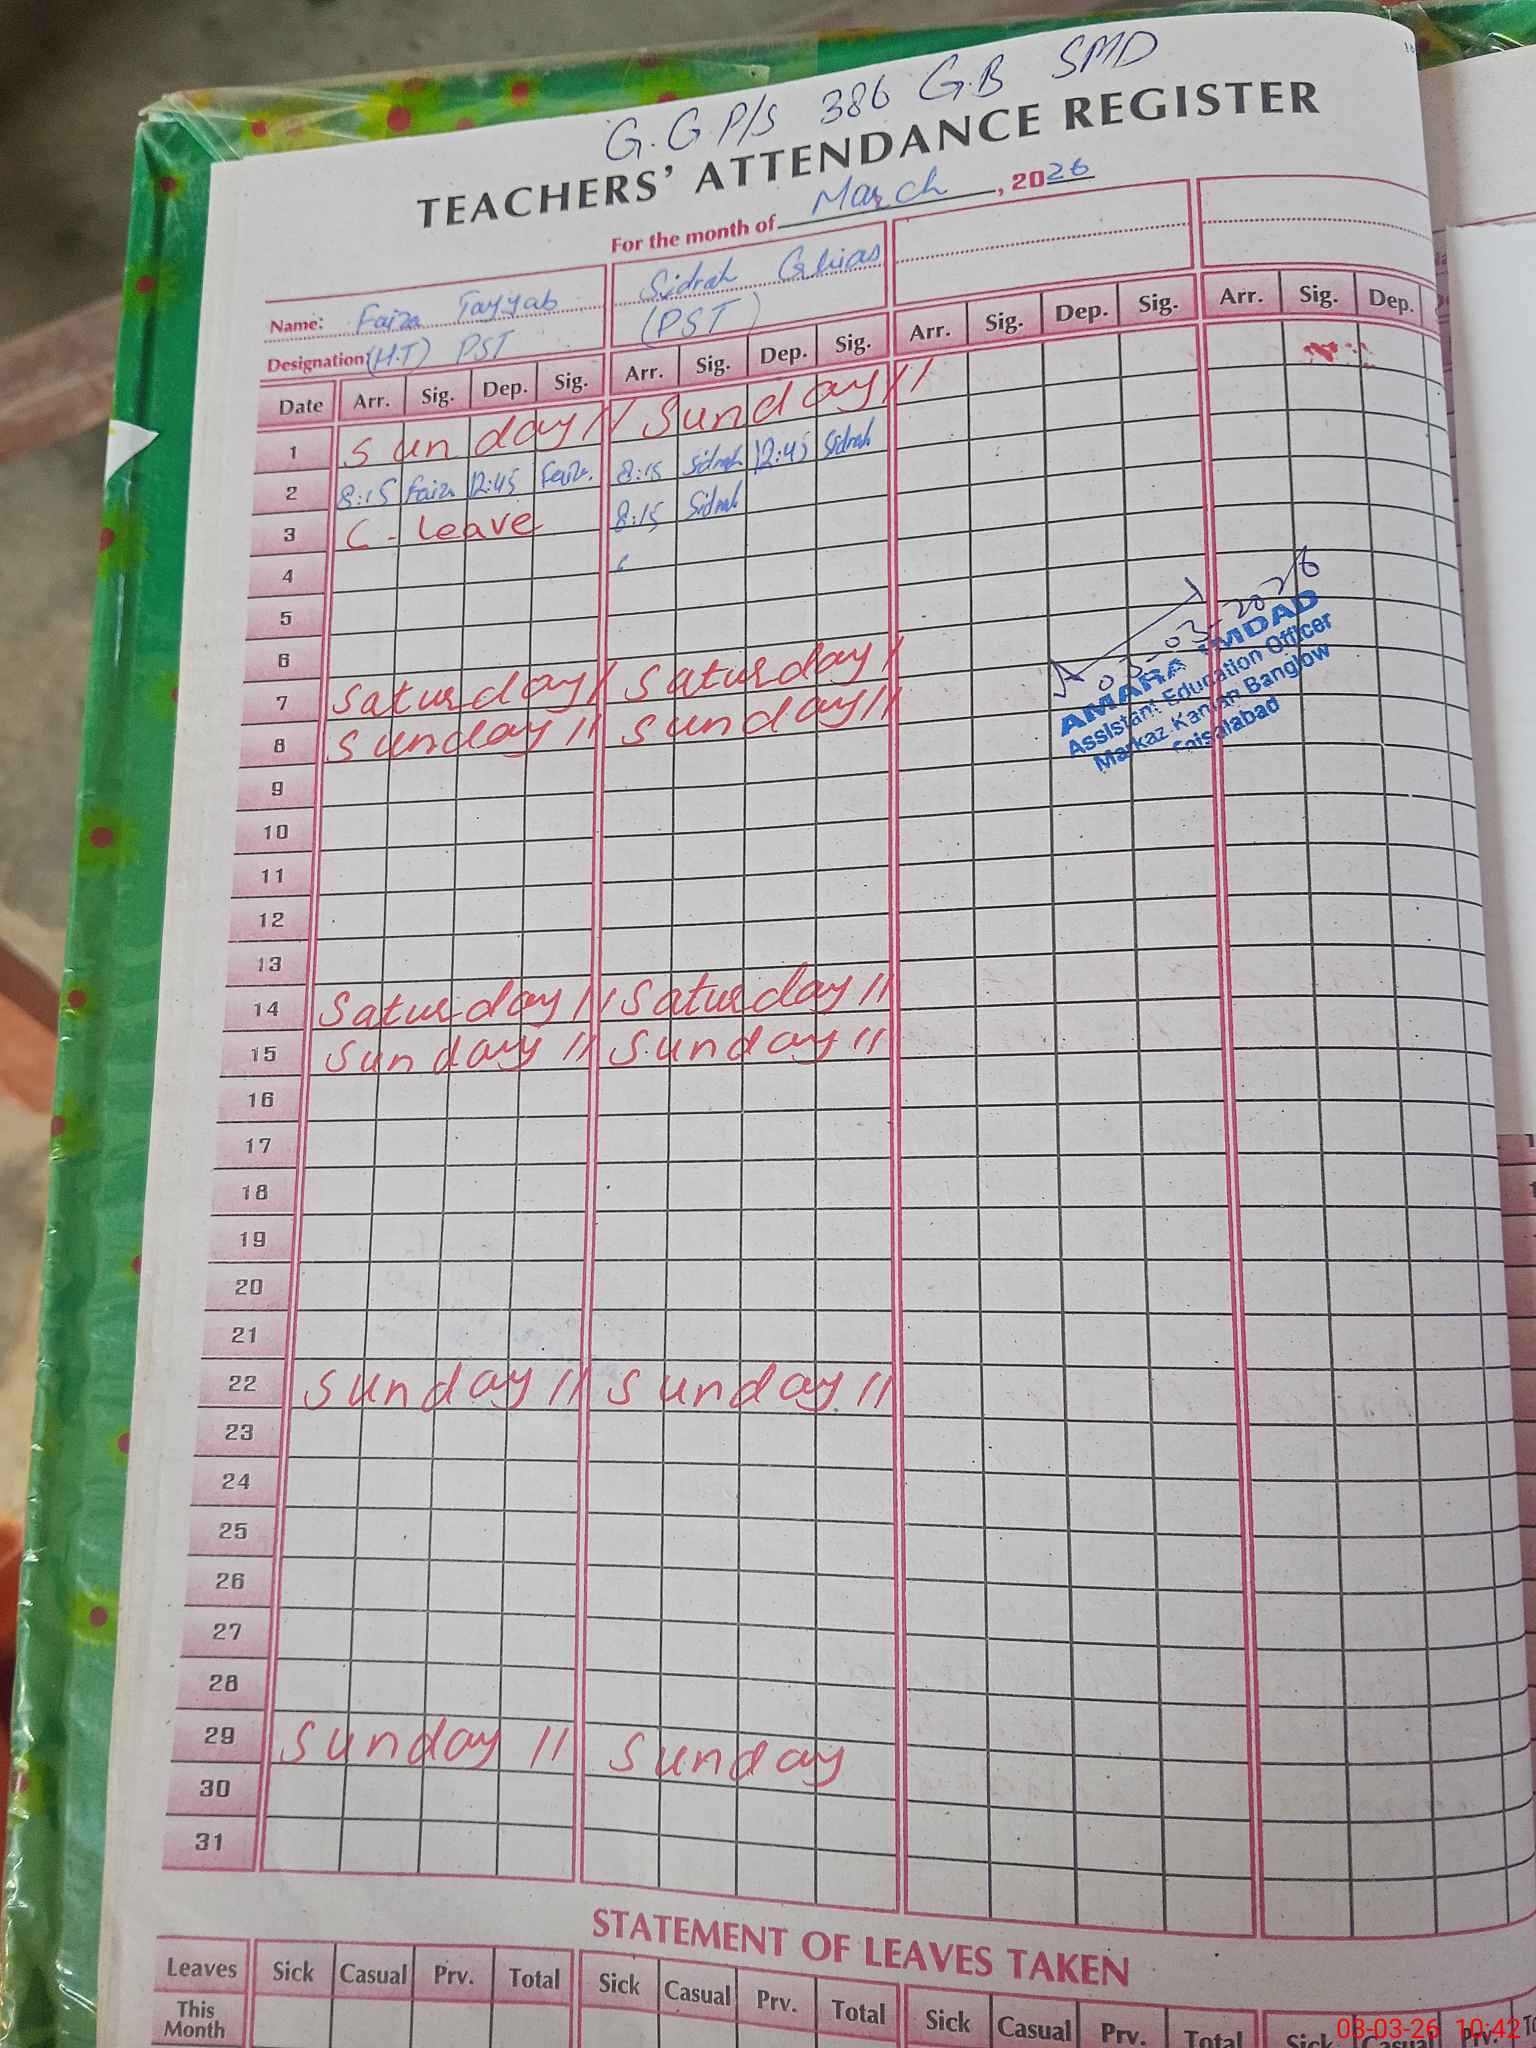 G.G P/S 386 G.B SMD
TEACHERS' ATTENDANCE REGISTER
For the month of March, 2026
Name: Faiza Tayyab Sidrah Ghias
Designation (H.T) PST (PST)
Date Arr. Sig. Dep. Sig. Arr. Sig. Dep. Sig. Arr. Sig. Dep. Sig. Arr. Sig. Dep.
1 Sunday // Sunday //
2 8:15 Faiza 12:45 Faiza. 8:15 Sidrah 12:45 Sidrah
3 C-Leave 8:15 Sidrah
4
5
6
7 Saturday // Saturday /
8 Sunday // Sunday //
03-03-2026
AMARA IMDAD
Assistant Education Officer
Markaz Kanjan Banglow
Faisalabad
9
10
11
12
13
14 Saturday // Saturday //
15 Sunday // Sunday //
16
17
18
19
20
21
22 Sunday // Sunday //
23
24
25
26
27
28
29 Sunday // Sunday
30
31
STATEMENT OF LEAVES TAKEN
Leaves Sick Casual Prv. Total Sick Casual Prv. Total Sick Casual Prv. Total Sick Casual Prv.
This Month
03-03-26 10:42